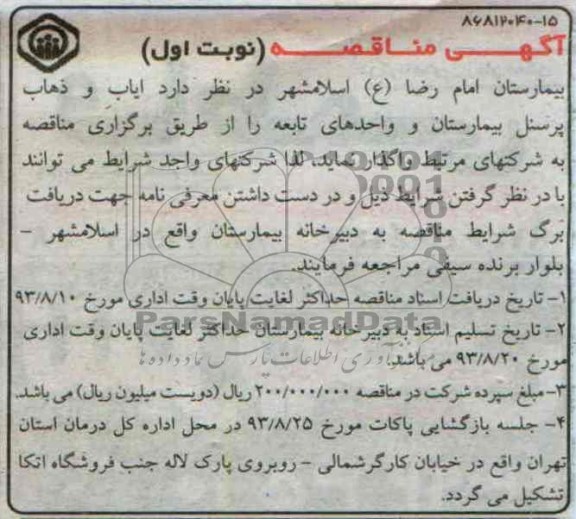 ۸۶۸۱۲۰۴۰-۱۵
آگهی مناقصه (نوبت اول)
بیمارستان امام رضا (ع) اسلامشهر در نظر دارد ایاب و ذهاب
پرسنل بیمارستان و واحدهای تابعه را از طریق برگزاری مناقصه
به شرکتهای مرتبط واگذار نماید، لذا شرکتهای واجد شرایط می توانند
با در نظر گرفتن شرایط ذیل و در دست داشتن معرفی نامه جهت دریافت
برگ شرایط مناقصه به دبیرخانه بیمارستان واقع در اسلامشهر -
بلوار برنده سیفی مراجعه فرمایند.
۱- تاریخ دریافت اسناد مناقصه حداکثر لغایت پایان وقت اداری مورخ ۹۳/۸/۱۰
ParsNamadData
۲- تاریخ تسلیم اسناد به دبیرخانه بیمارستان حداکثر لغایت پایان وقت اداری
مورخ ۹۳/۸/۲۰ می باشد.
فن‌آوری اطلاعات پارس نماد داده ها
۳- مبلغ سپرده شرکت در مناقصه ۲۰۰/۰۰۰/۰۰۰ ریال (دویست میلیون ریال) می باشد.
۴- جلسه بازگشایی پاکات مورخ ۹۳/۸/۲۵ در محل اداره کل درمان استان
تهران واقع در خیابان کارگرشمالی - روبروی پارک لاله جنب فروشگاه اتکا
تشکیل می گردد.